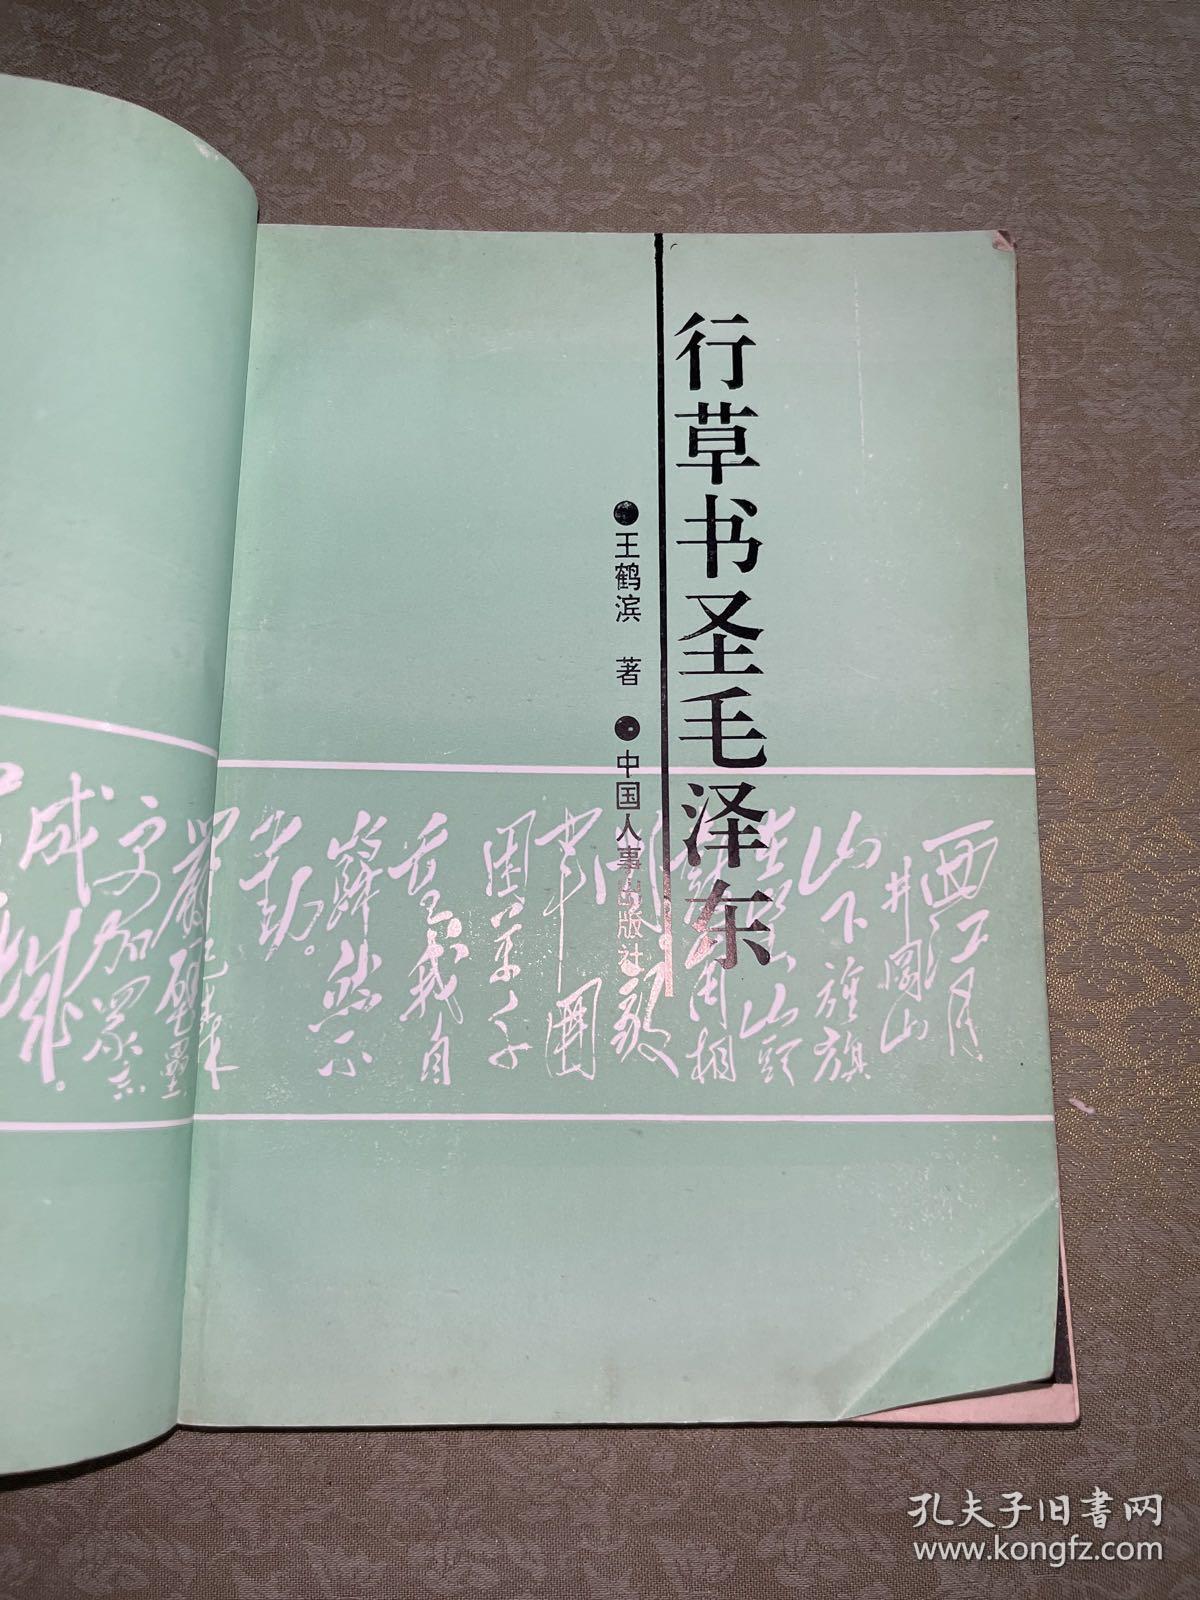 行草书圣毛泽东
●王鹤滨 著●中国人事出版社
西江月
井冈山
山下旌旗
在望，山頭
鼓角相
闻。敌
军围
困万千
重，我自
岿然不
动。
早已
森严壁壘
更加眾志
成城。
孔夫子旧書网
www.kongfz.com